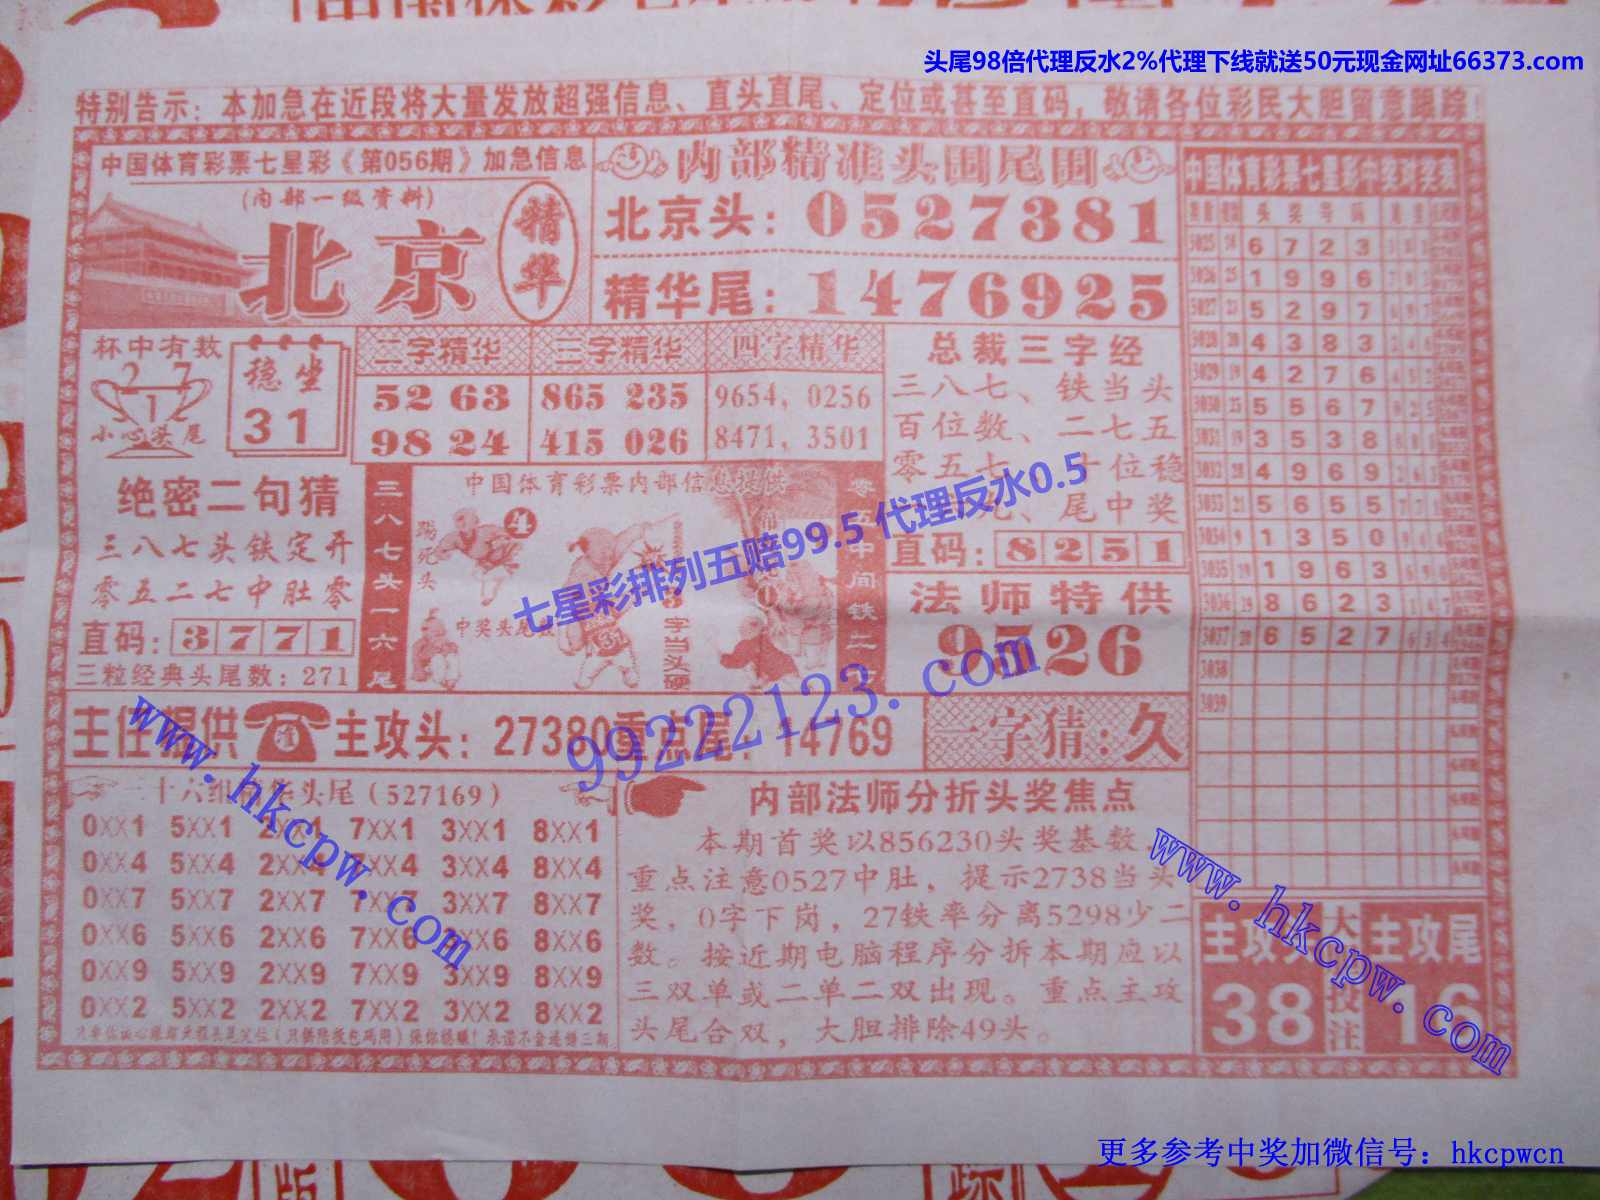 头尾98倍代理反水2%代理下线就送50元现金网址66373.com
特别告示：本加急在近段将大量发放超强信息、直头直尾、定位或甚至直码，敬请各位彩民大胆留意跟踪！
中国体育彩票七星彩《第056期》加急信息
(内部一级资料)
北京
精华
内部精准头围尾围
北京头：0527381
精华尾：1476925
杯中有数
2 7
1
小心头尾
稳坐
31
二字精华
52 63
98 24
三字精华
865 235
415 026
四字精华
9654，0256
8471，3501
总裁三字经
三八七、铁当头
百位数、二七五
零五七 十位稳
尾中奖
直码：8251
法师特供
9526
绝密二句猜
三八七头铁定开
零五二七中肚零
直码：3771
三粒经典头尾数：271
三八七头一六尾
中国体育彩票内部信息提供
踢死头
4
中奖头尾
31
3字当头硬
主任提供
准
主攻头：27380重点尾：14769
一字猜：久
头尾（527169）
0XX1 5XX1 2XX1 7XX1 3XX1 8XX1
0XX4 5XX4 2XX4 7XX4 3XX4 8XX4
0XX7 5XX7 2XX7 7XX7 3XX7 8XX7
0XX6 5XX6 2XX6 7XX6 3XX6 8XX6
0XX9 5XX9 2XX9 7XX9 3XX9 8XX9
0XX2 5XX2 2XX2 7XX2 3XX2 8XX2
内部法师分折头奖焦点
本期首奖以856230头奖基数，
重点注意0527中肚，提示2738当头
奖，0字下岗，27铁率分离5298少二
数。按近期电脑程序分拆本期应以
三双单或二单二双出现。重点主攻
头尾合双，大胆排除49头。
中国体育彩票七星彩中奖对奖表
头 奖 号 码
3025 6 7 2 3
3026 1 9 9 6
3027 5 2 9 7
3028 4 3 8 3
3029 4 2 7 6
3030 5 5 6 7
3031 3 5 3 8
3032 4 9 6 9
3033 5 6 5 5
3034 1 3 5 0
3035 1 9 6 3
3036 8 6 2 3
3037 6 5 2 7
3038
3039
主攻头
38
大投注
主攻尾
16
七星彩排列五赔99.5 代理反水0.5
99222123.com
www.hkcpw.com
www.hkcpw.com
更多参考中奖加微信号：hkcpwcn